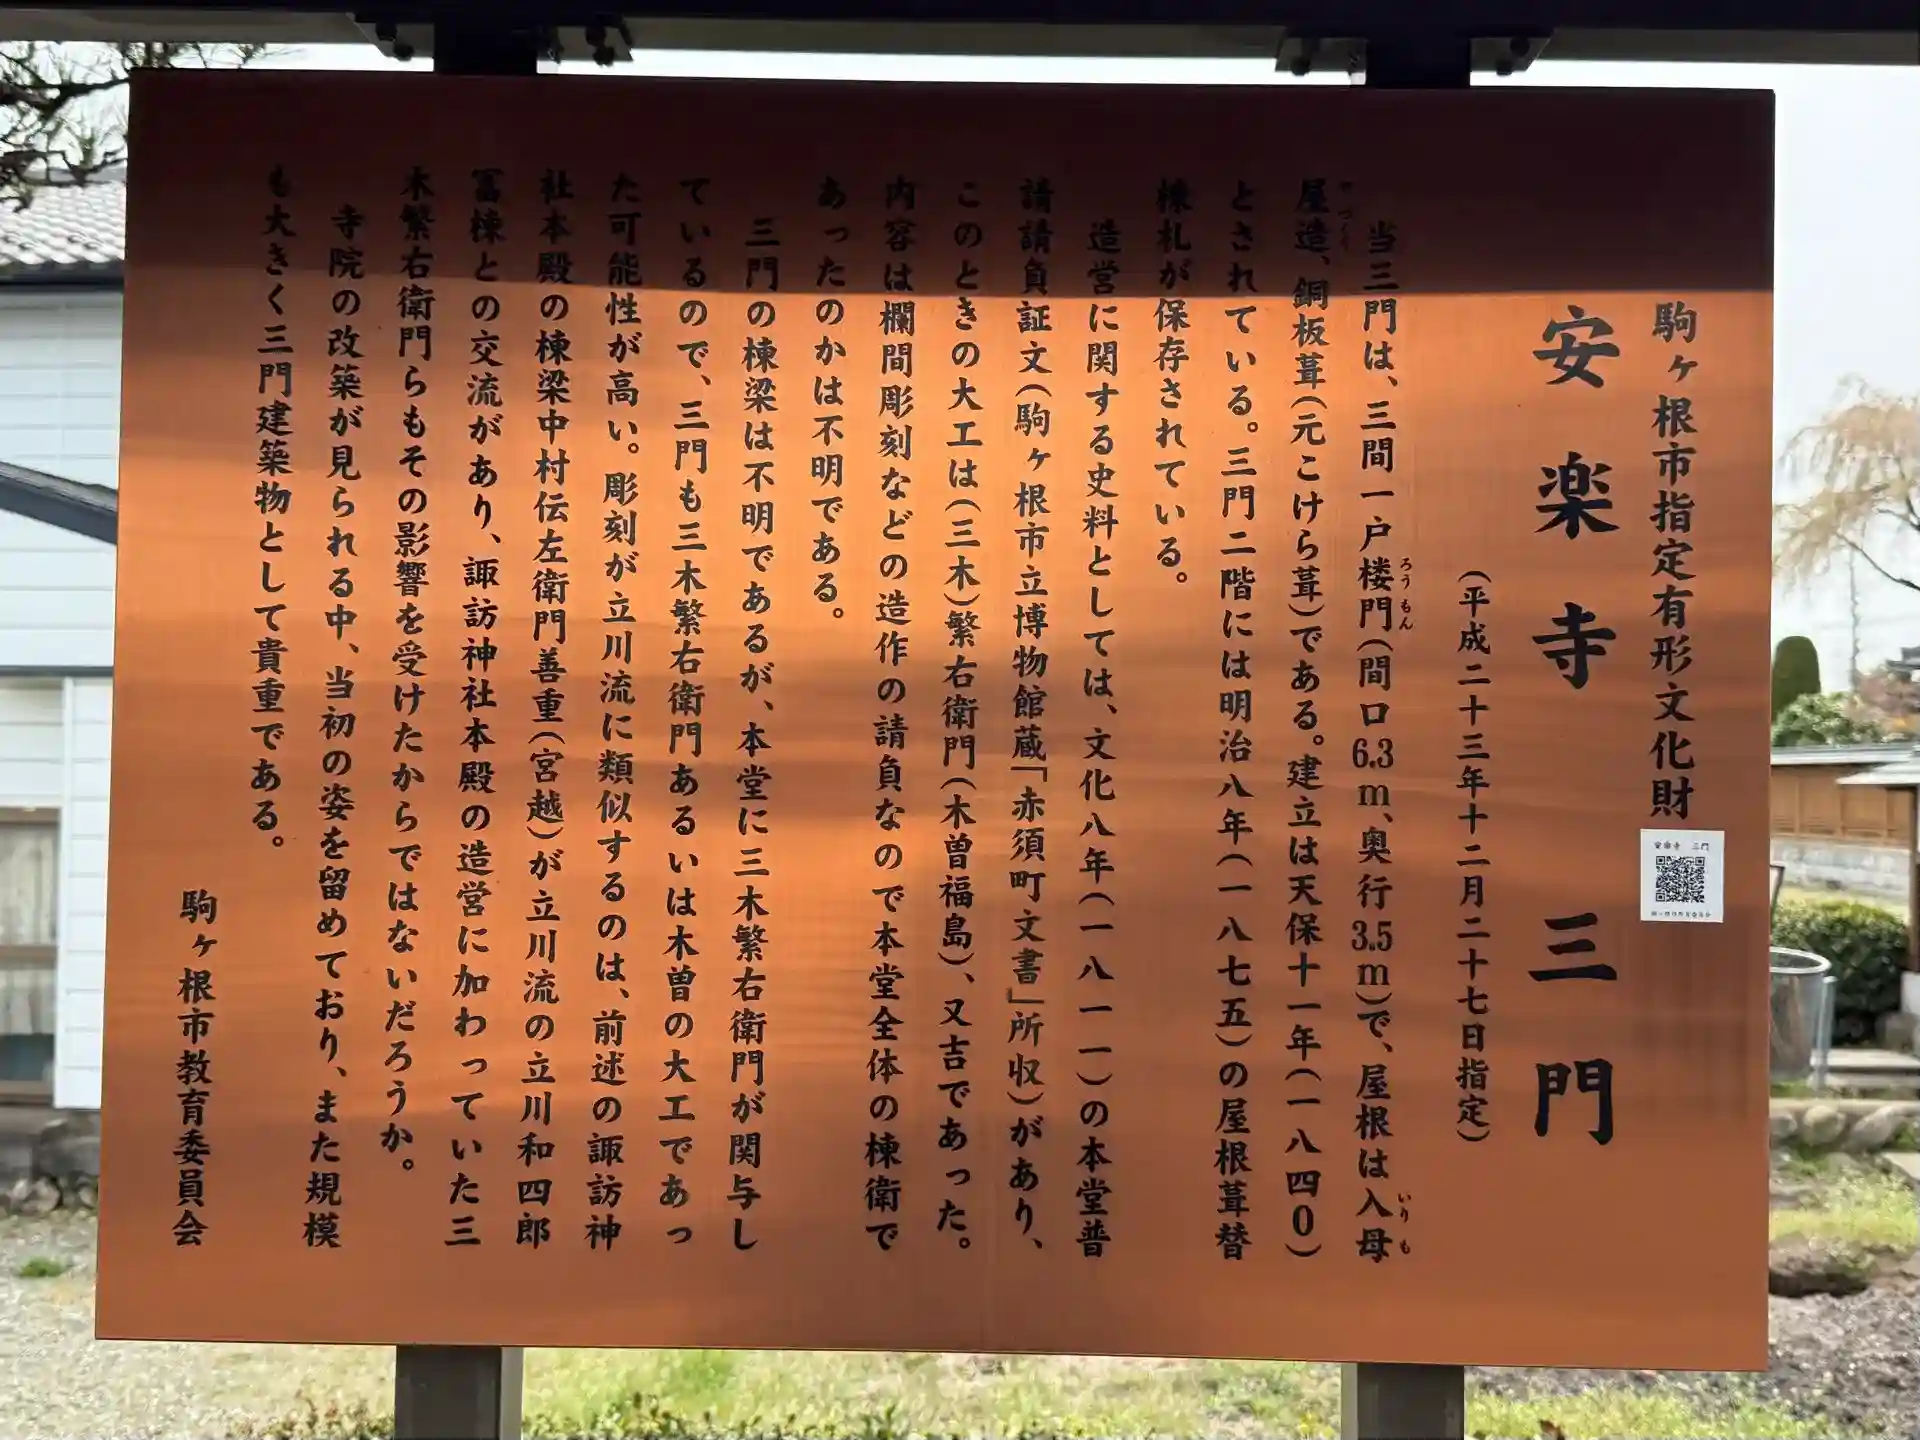 駒ヶ根市指定有形文化財
安楽寺 三門
(平成二十三年十二月二十七日指定)
当三門は、三間一戸楼門(間口6.3m、奥行3.5m)で、屋根は入母
屋造、銅板葺(元こけら葺)である。建立は天保十一年(一八四0)
とされている。三門二階には明治八年(一八七五)の屋根葺替
棟札が保存されている。
造営に関する史料としては、文化八年(一八一一)の本堂普
請請負証文(駒ヶ根市立博物館蔵「赤須町文書」所収)があり、
このときの大工は(三木)繁右衛門(木曽福島)、又吉であった。
内容は欄間彫刻などの造作の請負なので本堂全体の棟衛で
あったのかは不明である。
三門の棟梁は不明であるが、本堂に三木繁右衛門が関与し
ているので、三門も三木繁右衛門あるいは木曽の大工であっ
た可能性が高い。彫刻が立川流に類似するのは、前述の諏訪神
社本殿の棟梁中村伝左衛門善重(宮越)が立川流の立川和四郎
冨棟との交流があり、諏訪神社本殿の造営に加わっていた三
木繁右衛門らもその影響を受けたからではないだろうか。
寺院の改築が見られる中、当初の姿を留めており、また規模
も大きく三門建築物として貴重である。
駒ヶ根市教育委員会
ろうもん
いりも
やづくり
安楽寺 三門